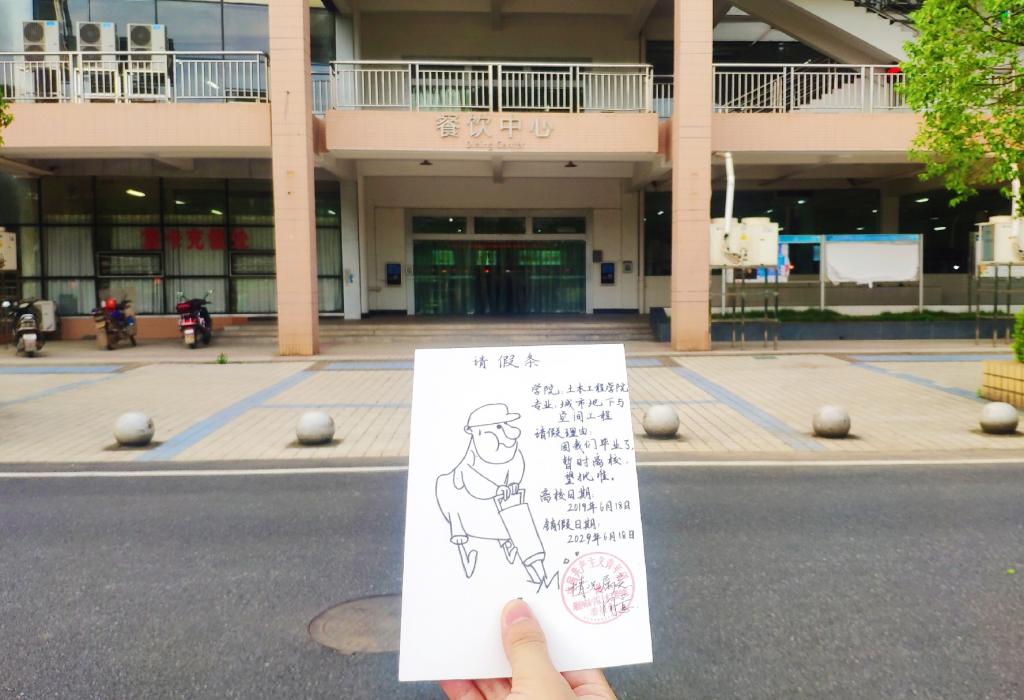 餐饮中心
Dining Center
请假条
学院：土木工程学院
专业：城市地下与
空间工程
请假理由：
因我们毕业了，
暂时离校，
望批准。
离校日期：
2019年6月18日
销假日期：
2029年6月18日
情况属实